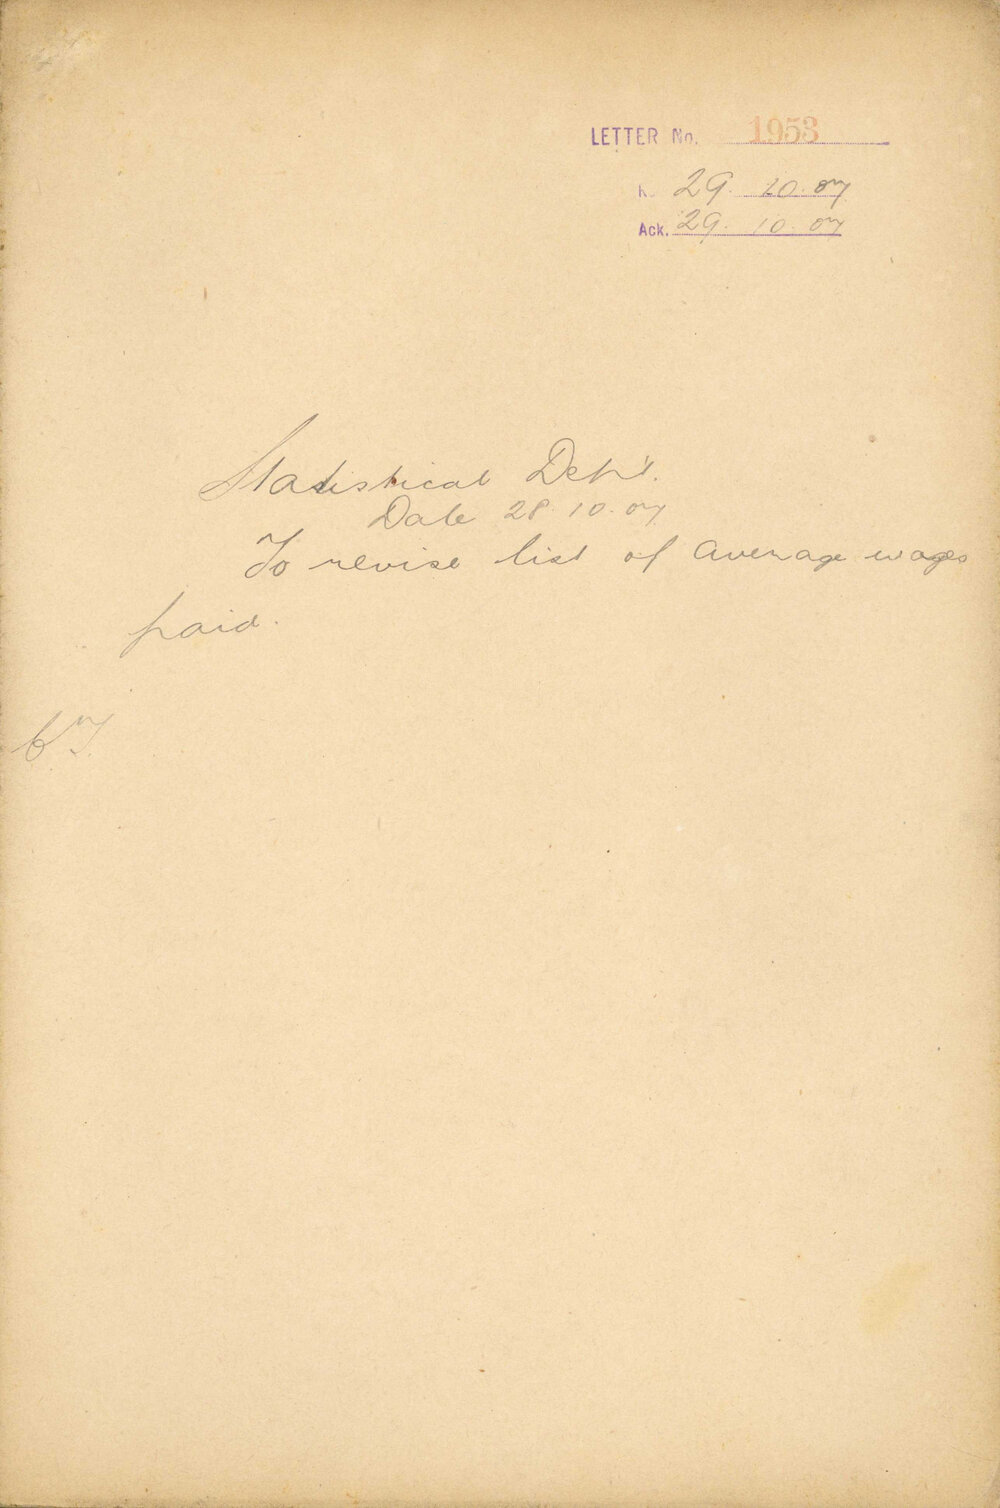 LETTER No. 1953
R. 29. 10. 07
Ack. 29. 10. 07
Statistical Dep't.
Date 28. 10. 07
To revise list of average wages
paid.